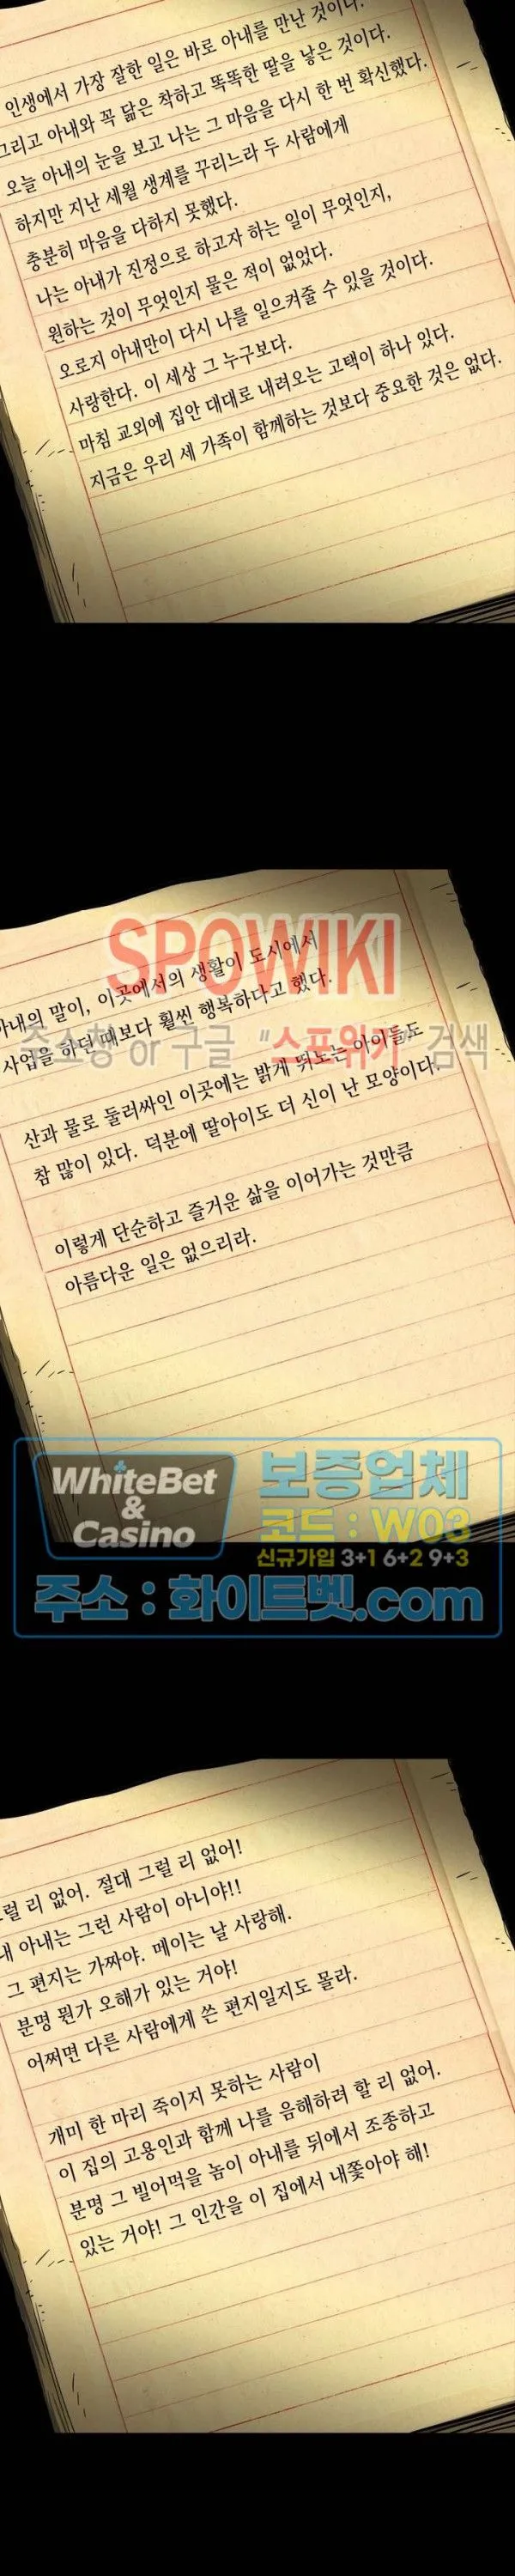 인생에서 가장 잘한 일은 바로 아내를 만난 것이다.
그리고 아내와 꼭 닮은 착하고 똑똑한 딸을 낳은 것이다.
오늘 아내의 눈을 보고 나는 그 마음을 다시 한 번 확신했다.
하지만 지난 세월 생계를 꾸리느라 두 사람에게
충분히 마음을 다하지 못했다.
나는 아내가 진정으로 하고자 하는 일이 무엇인지,
원하는 것이 무엇인지 물은 적이 없었다.
오로지 아내만이 다시 나를 일으켜줄 수 있을 것이다.
사랑한다. 이 세상 그 누구보다.
마침 교외에 집안 대대로 내려오는 고택이 하나 있다.
지금은 우리 세 가족이 함께하는 것보다 중요한 것은 없다.
SPOWIKI
아내의 말이, 이곳에서의 생활이 도시에서
사업을 하던 때보다 훨씬 행복하다고 했다.
주소창 or 구글 "스포위키" 검색
산과 물로 둘러싸인 이곳에는 밝게 뛰노는 아이들도
참 많이 있다. 덕분에 딸아이도 더 신이 난 모양이다.
이렇게 단순하고 즐거운 삶을 이어가는 것만큼
아름다운 일은 없으리라.
WhiteBet & Casino
보증업체
코드 : W03
신규가입 3+1 6+2 9+3
주소 : 화이트벳.com
그럴 리 없어. 절대 그럴 리 없어!
내 아내는 그런 사람이 아니야!!
그 편지는 가짜야. 메이는 날 사랑해.
분명 뭔가 오해가 있는 거야!
어쩌면 다른 사람에게 쓴 편지일지도 몰라.
개미 한 마리 죽이지 못하는 사람이
이 집의 고용인과 함께 나를 음해하려 할 리 없어.
분명 그 빌어먹을 놈이 아내를 뒤에서 조종하고
있는 거야! 그 인간을 이 집에서 내쫓아야 해!